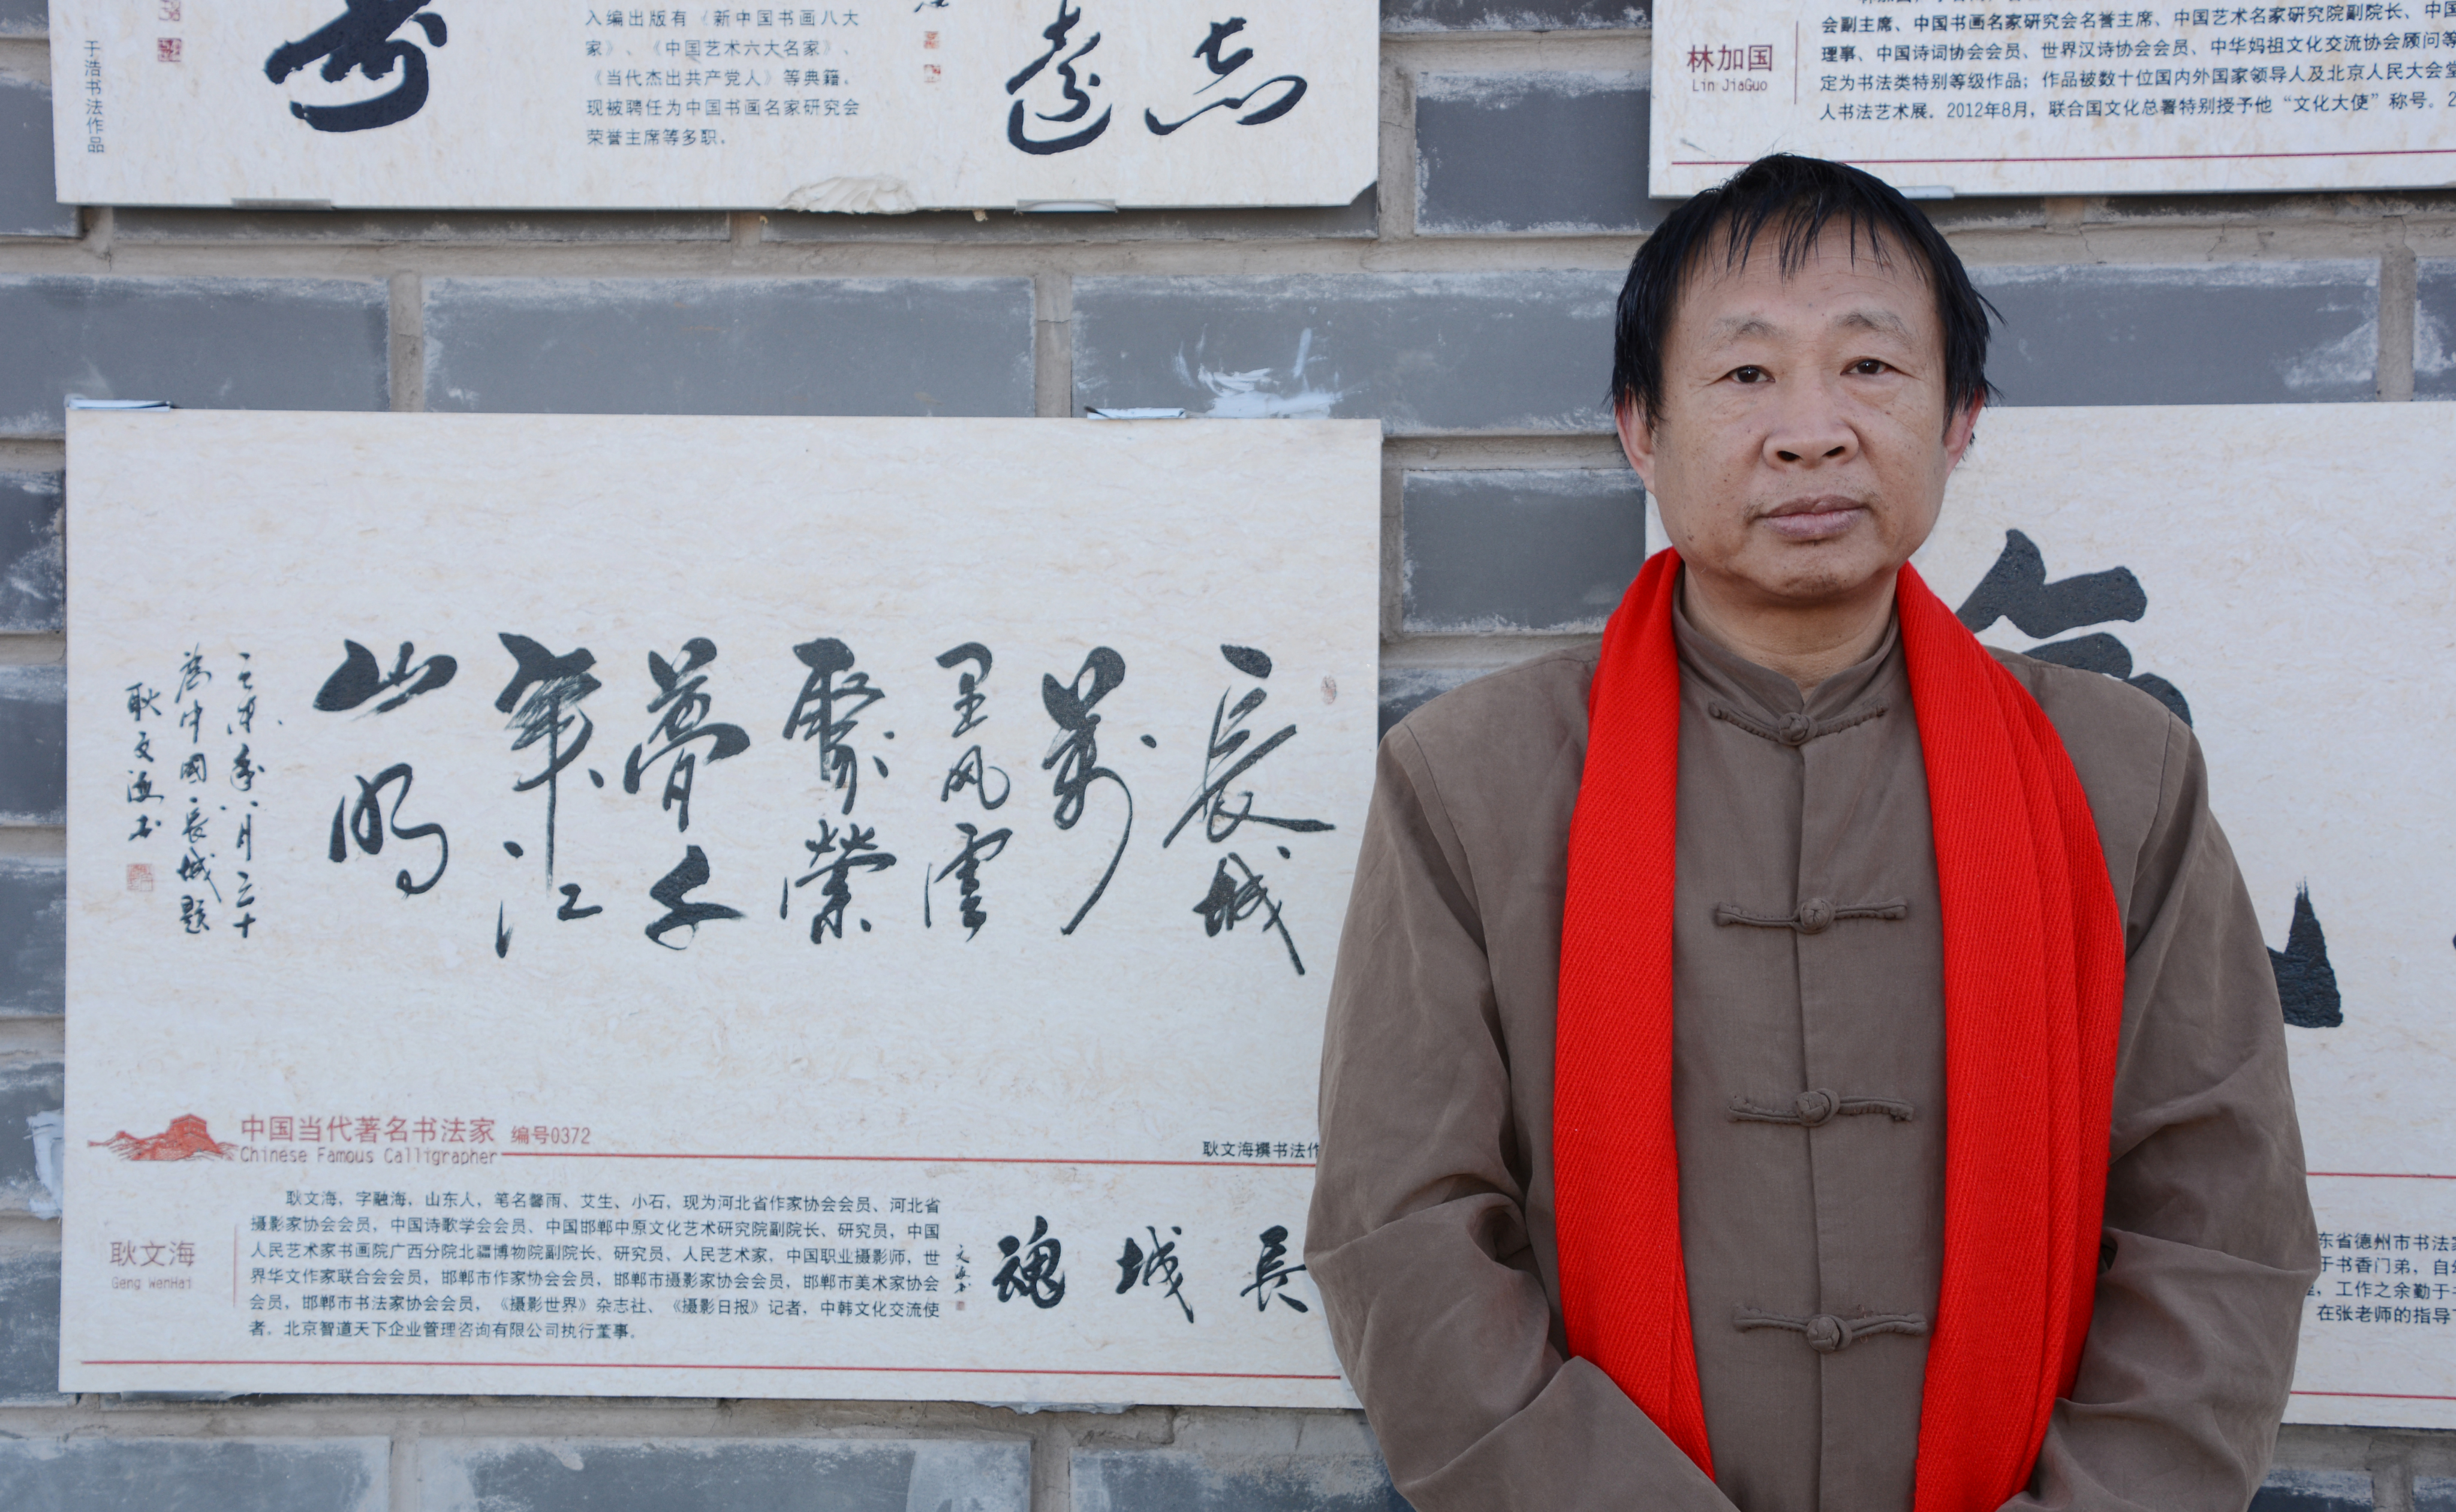 于浩书法作品
入编出版有《新中国书画八大
家》、《中国艺术六大名家》、
《当代杰出共产党人》等典籍。
现被聘任为中国书画名家研究会
荣誉主席等多职。
志
林加国
Lin JiaGuo
会副主席、中国书画名家研究会名誉主席、中国艺术名家研究院副院长、中国
理事、中国诗词协会会员、世界汉诗协会会员、中华妈祖文化交流协会顾问等
定为书法类特别等级作品；作品被数十位国内外国家领导人及北京人民大会堂
人书法艺术展。2012年8月，联合国文化总署特别授予他“文化大使”称号。2
長城
萬
里风雲
聚縈
夢千
年江
山
年八月三十
為中國長城題
耿文海书
中国当代著名书法家 编号0372
Chinese Famous Calligrapher
耿文海撰书法作
耿文海
Geng WenHai
耿文海，字融海，山东人，笔名馨雨、艾生、小石，现为河北省作家协会会员、河北省
摄影家协会会员，中国诗歌学会会员、中国邯郸中原文化艺术研究院副院长、研究员，中国
人民艺术家书画院广西分院北疆博物院副院长、研究员、人民艺术家，中国职业摄影师，世
界华文作家联合会会员，邯郸市作家协会会员，邯郸市摄影家协会会员，邯郸市美术家协会
会员，邯郸市书法家协会会员，《摄影世界》杂志社、《摄影日报》记者，中韩文化交流使
者。北京智道天下企业管理咨询有限公司执行董事。
長城魂
文海书
东省德州市书法家
于书香门弟，自幼
，工作之余勤于书
在张老师的指导